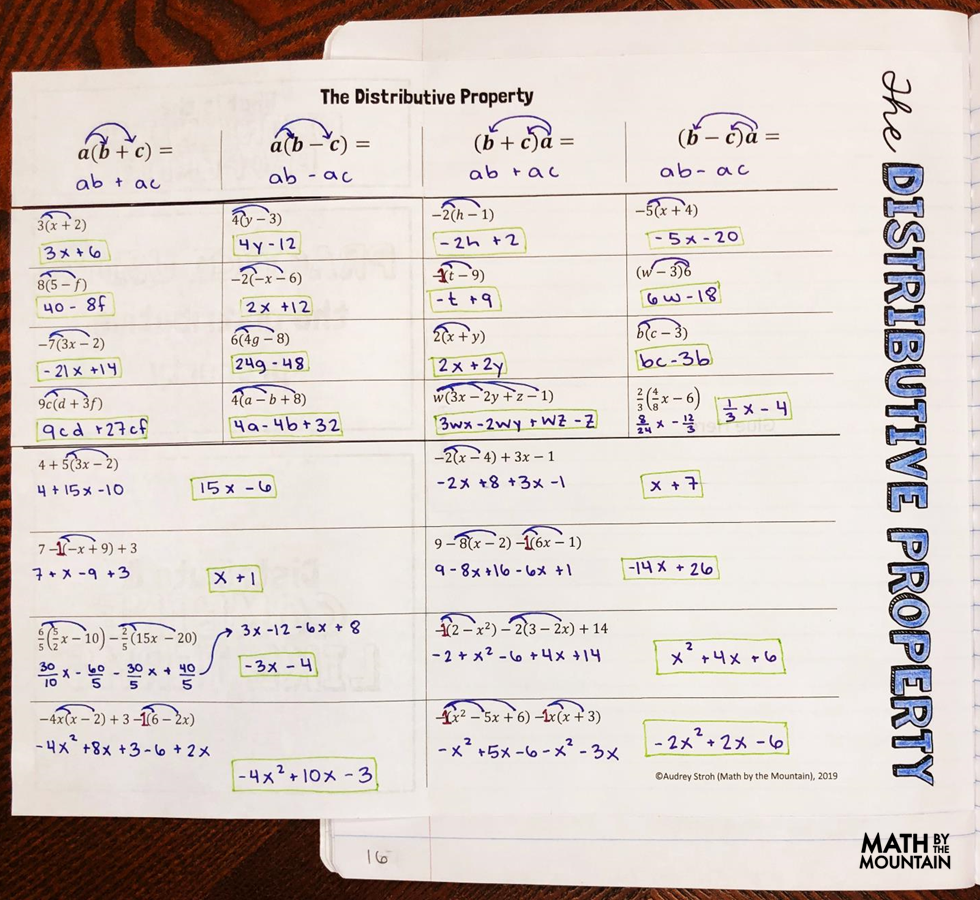 The Distributive Property
a(b + c) =
ab + ac
a(b − c) =
ab - ac
(b + c)a =
ab + ac
(b − c)a =
ab - ac
3(x + 2)
3x + 6
4(y − 3)
4y - 12
−2(h − 1)
- 2h + 2
−5(x + 4)
- 5x - 20
8(5 − f)
40 - 8f
−2(−x − 6)
2x + 12
−1(t − 9)
-t + 9
(w − 3)6
6w - 18
−7(3x − 2)
- 21x + 14
6(4g − 8)
24g - 48
2(x + y)
2x + 2y
b(c − 3)
bc - 3b
9c(d + 3f)
9cd + 27cf
4(a − b + 8)
4a - 4b + 32
w(3x − 2y + z − 1)
3wx - 2wy + wz - z
2/3(4/8x − 6)
8/24 x - 12/3
1/3 x - 4
4 + 5(3x − 2)
4 + 15x - 10
15x - 6
−2(x − 4) + 3x − 1
-2x + 8 + 3x - 1
x + 7
7 − 1(−x + 9) + 3
7 + x - 9 + 3
x + 1
9 − 8(x − 2) − 1(6x − 1)
9 - 8x + 16 - 6x + 1
-14x + 26
6/5(5/2x − 10) − 2/5(15x − 20)
30/10 x - 60/5 - 30/5 x + 40/5
3x - 12 - 6x + 8
-3x - 4
−1(2 − x²) − 2(3 − 2x) + 14
-2 + x² - 6 + 4x + 14
x² + 4x + 6
−4x(x − 2) + 3 − 1(6 − 2x)
-4x² + 8x + 3 - 6 + 2x
-4x² + 10x - 3
−1(x² − 5x + 6) − 1x(x + 3)
-x² + 5x - 6 - x² - 3x
-2x² + 2x - 6
©Audrey Stroh (Math by the Mountain), 2019
The DISTRIBUTIVE PROPERTY
16
MATH BY THE MOUNTAIN